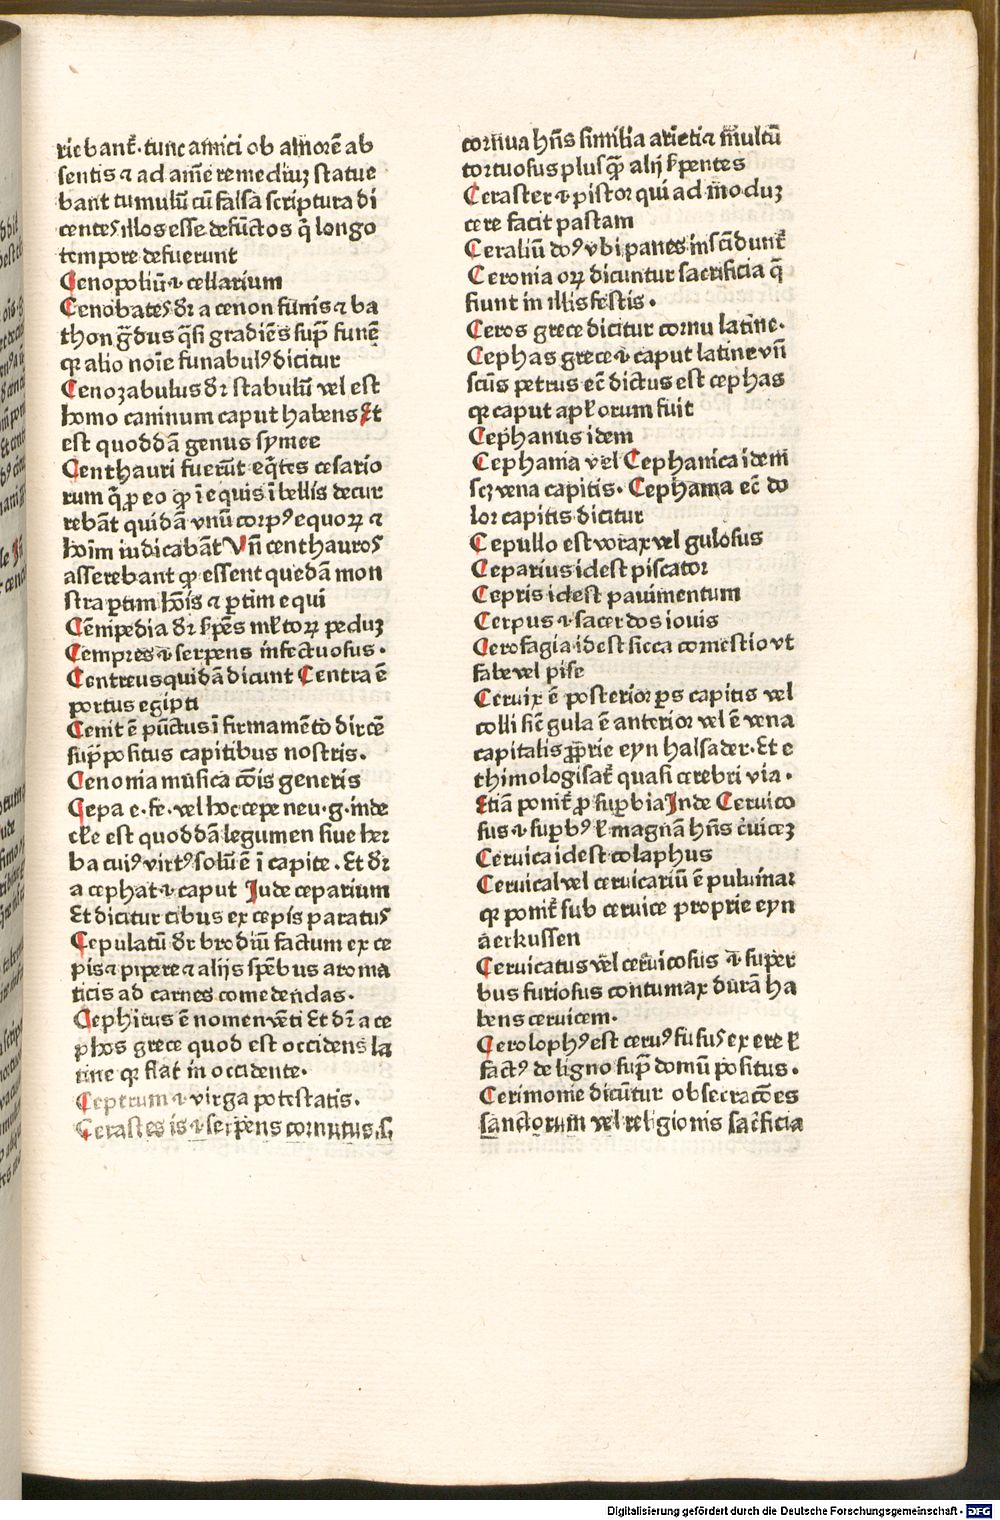 riebant᷑. tunc amici ob amorē ab
sentis ⁊ ad amē remediuꝫ statue
bant tumulū cū falsa scriptura di
centes illos esse defūctos q̄ longo
tempore defuerunt
Cenopoliū ē cellarium
Cenobates dr̄ a cenon funis ⁊ ba
thon gͣdus qͣsi gradiēs sup̄ funē
qꝛ alio noīe funabulꝰ dicitur
Cenozabulus dr̄ stabulū vel est
homo caninum caput habens Et
est quoddā genus symee
Centhauri fuerūt eq̄tes cesario
rum q̄ ꝓ eo ꝙ ī equis ī bellis decur
rebāt quidā vnū corpꝰ equoꝝ ⁊
hoīm iudicabāt Vn̄ centhauros
asserebant ꝙ essent quedā mon
stra ꝑtim hoīs ⁊ ꝑtim equi
Cēmpedia dr̄ ẜpēs ml̄toꝝ peduꝫ
Cempres ē serpens infectuosus.
Centreus quidā dicunt Centra ē
portus egipti
Cenit ē pūctus ī firmamēto dircē
sup̄positus capitibus nostris.
Cenonia musica cōis generis
Cepa e. fe. vel hoc cepe neu. g. inde
cl̄e est quoddā legumen siue her
ba cuiꝰ virtꝰ solū ē ī capite. Et dr̄
a cephat ē caput Inde ceparium
Et dicitur cibus ex cepis paratus
Cepulatū dr̄ brodiū factum ex ce
pis ⁊ pipere ⁊ alijs spēbus aroma
ticis ad carnes comedendas.
Cephirus ē nomen vēti Et dr̄ a ce
phos grece quod est occidens la
tine qꝛ flat in occidente.
Ceptrum ē virga potestatis.
Cerastes is ē serpens cornutus. s.
cornua hn̄s similia arietis ⁊ multū
tortuosus plusq̄ alij ẜpentes
Ceraster ē pistor qui ad moduꝫ
cere facit pastam
Ceraliū dōꝰ vbi panes inscīdunt᷑
Ceronia oꝝ dicuntur sacrificia q̄
fiunt in illis festis.
Ceros grece dicitur cornu latine.
Cephas grece ē caput latine vn̄
scūs petrus ec̄ dictus est cephas
qꝛ caput apl̄orum fuit
Cephanus idem
Cephania vel Cephanica idem
scꝫ vena capitis. Cephama ec̄ do
lor capitis dicitur
Cepullo est vorax vel gulosus
Ceparius idest piscator
Cepris idest pauimentum
Cerpus ē sacerdos iouis
Cerofagia idest sicca comestio vt
fabe vel pise
Ceruix ē posterior ꝑs capitis vel
colli sic̄ gula ē anterior vel ē vena
capitalis ꝓprie eyn halsader. Et e
thimologisat᷑ quasi cerebri via.
Etiā ponit᷑ ꝓ suꝑbia Inde Ceruico
sus ē suꝑbꝰ l̄ magnā hn̄s c̄uiceꝫ
Ceruica idest colaphus
Ceruical vel ceruicariū ē puluinar
qꝛ ponit᷑ sub ceruice proprie eyn
aerkussen
Ceruicatus vel ceruicosus ē super
bus furiosus contumax durā ha
bens ceruicem.
Cerolophꝰ est ceruꝰ fusus ex ere l̄
factꝰ de ligno sup̄ domū positus.
Cerimonie dicūtur obsecracōes
sanctorum vel religionis sac̄ficia
Digitalisierung gefördert durch die Deutsche Forschungsgemeinschaft - DFG